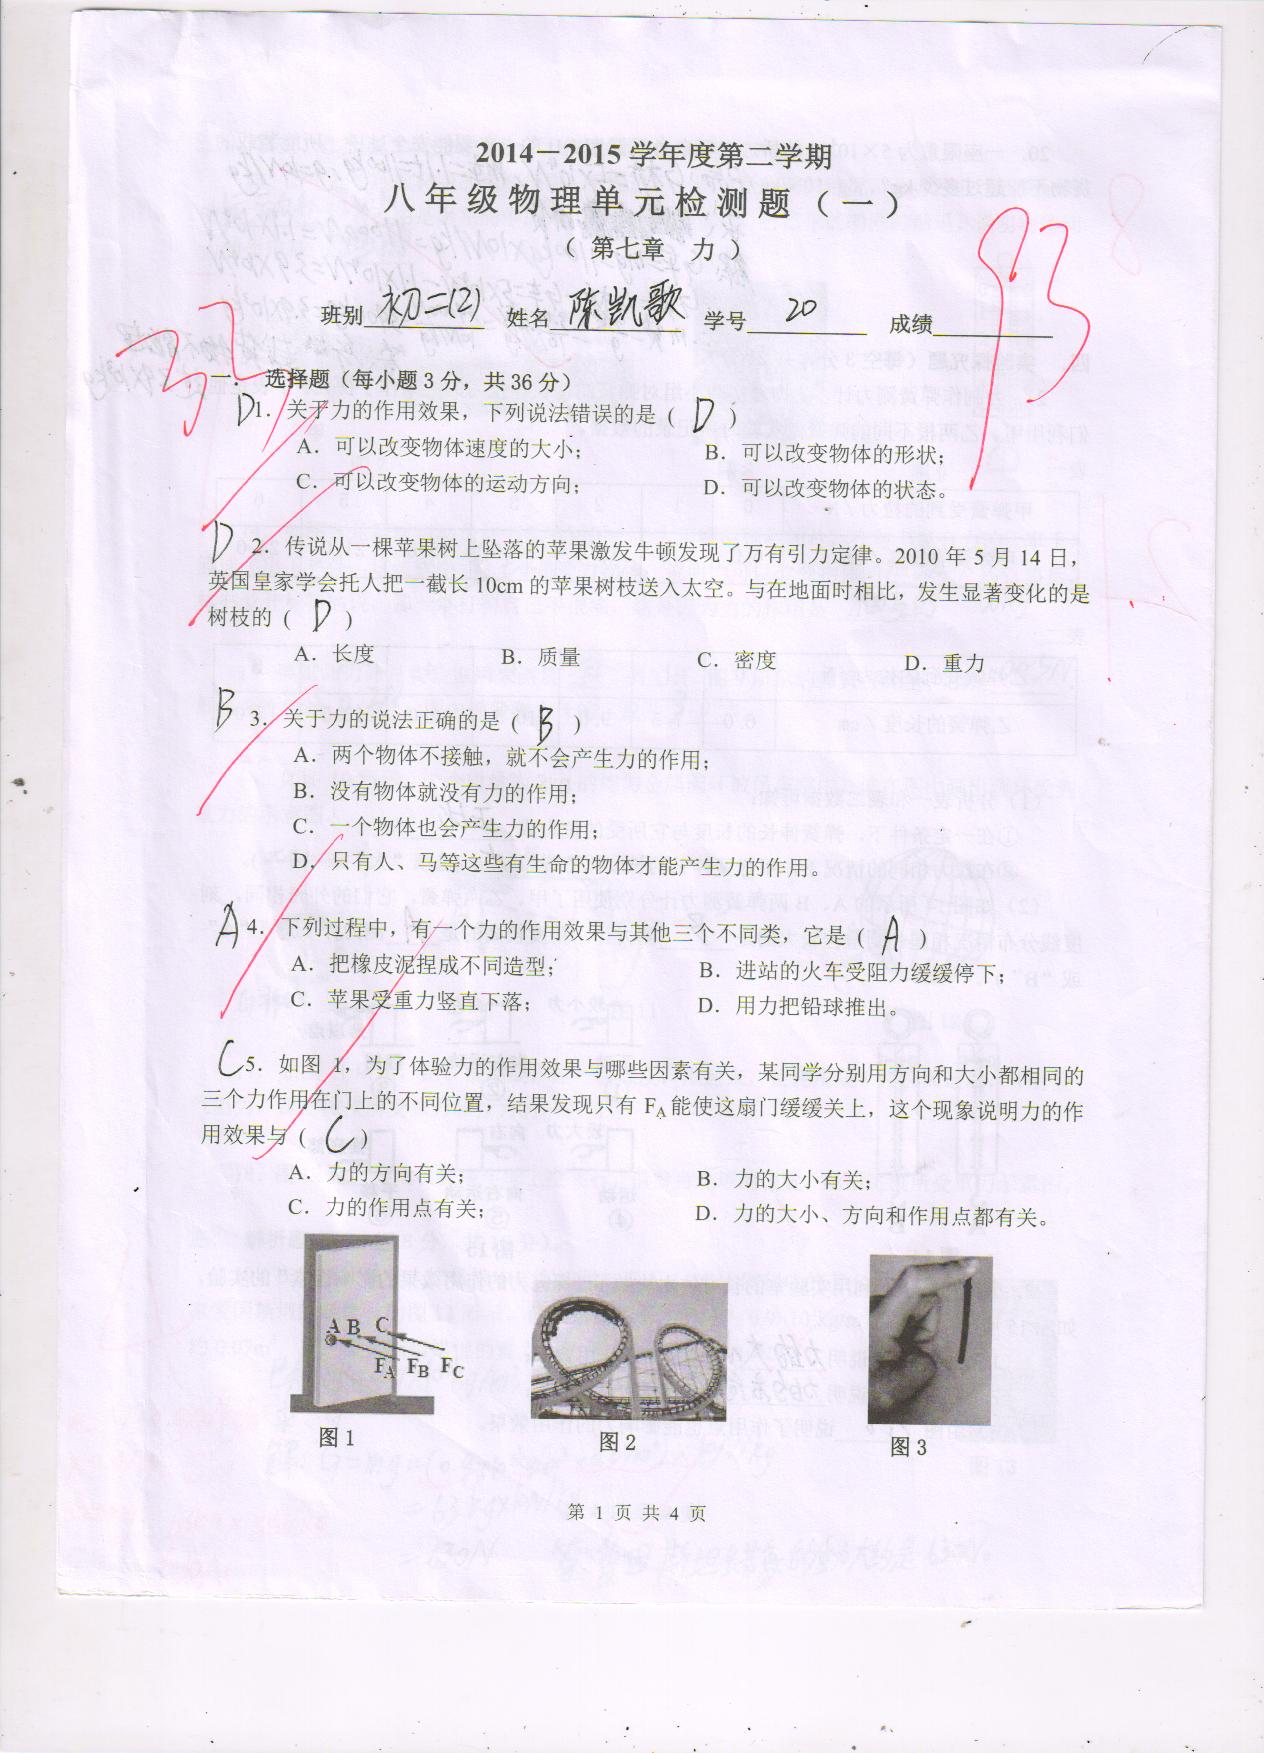 2014－2015 学年度第二学期
八年级物理单元检测题（一）
（ 第七章 力 ）
93
班别 初二(2) 姓名 陈凯歌 学号 20 成绩
33
一． 选择题（每小题 3 分，共 36 分）
D 1．关于力的作用效果，下列说法错误的是（ D ）
A．可以改变物体速度的大小； B．可以改变物体的形状；
C．可以改变物体的运动方向； D．可以改变物体的状态。
D 2．传说从一棵苹果树上坠落的苹果激发牛顿发现了万有引力定律。2010 年 5 月 14 日，
英国皇家学会托人把一截长 10cm 的苹果树枝送入太空。与在地面时相比，发生显著变化的是
树枝的（ D ）
A．长度 B．质量 C．密度 D．重力
B 3．关于力的说法正确的是（ B ）
A．两个物体不接触，就不会产生力的作用；
B．没有物体就没有力的作用；
C．一个物体也会产生力的作用；
D．只有人、马等这些有生命的物体才能产生力的作用。
A 4．下列过程中，有一个力的作用效果与其他三个不同类，它是（ A ）
A．把橡皮泥捏成不同造型； B．进站的火车受阻力缓缓停下；
C．苹果受重力竖直下落； D．用力把铅球推出。
C 5．如图 1，为了体验力的作用效果与哪些因素有关，某同学分别用方向和大小都相同的
三个力作用在门上的不同位置，结果发现只有 FA 能使这扇门缓缓关上，这个现象说明力的作
用效果与（ C ）
A．力的方向有关； B．力的大小有关；
C．力的作用点有关； D．力的大小、方向和作用点都有关。
A B C
FA FB FC
图 1 图 2 图 3
第 1 页 共 4 页